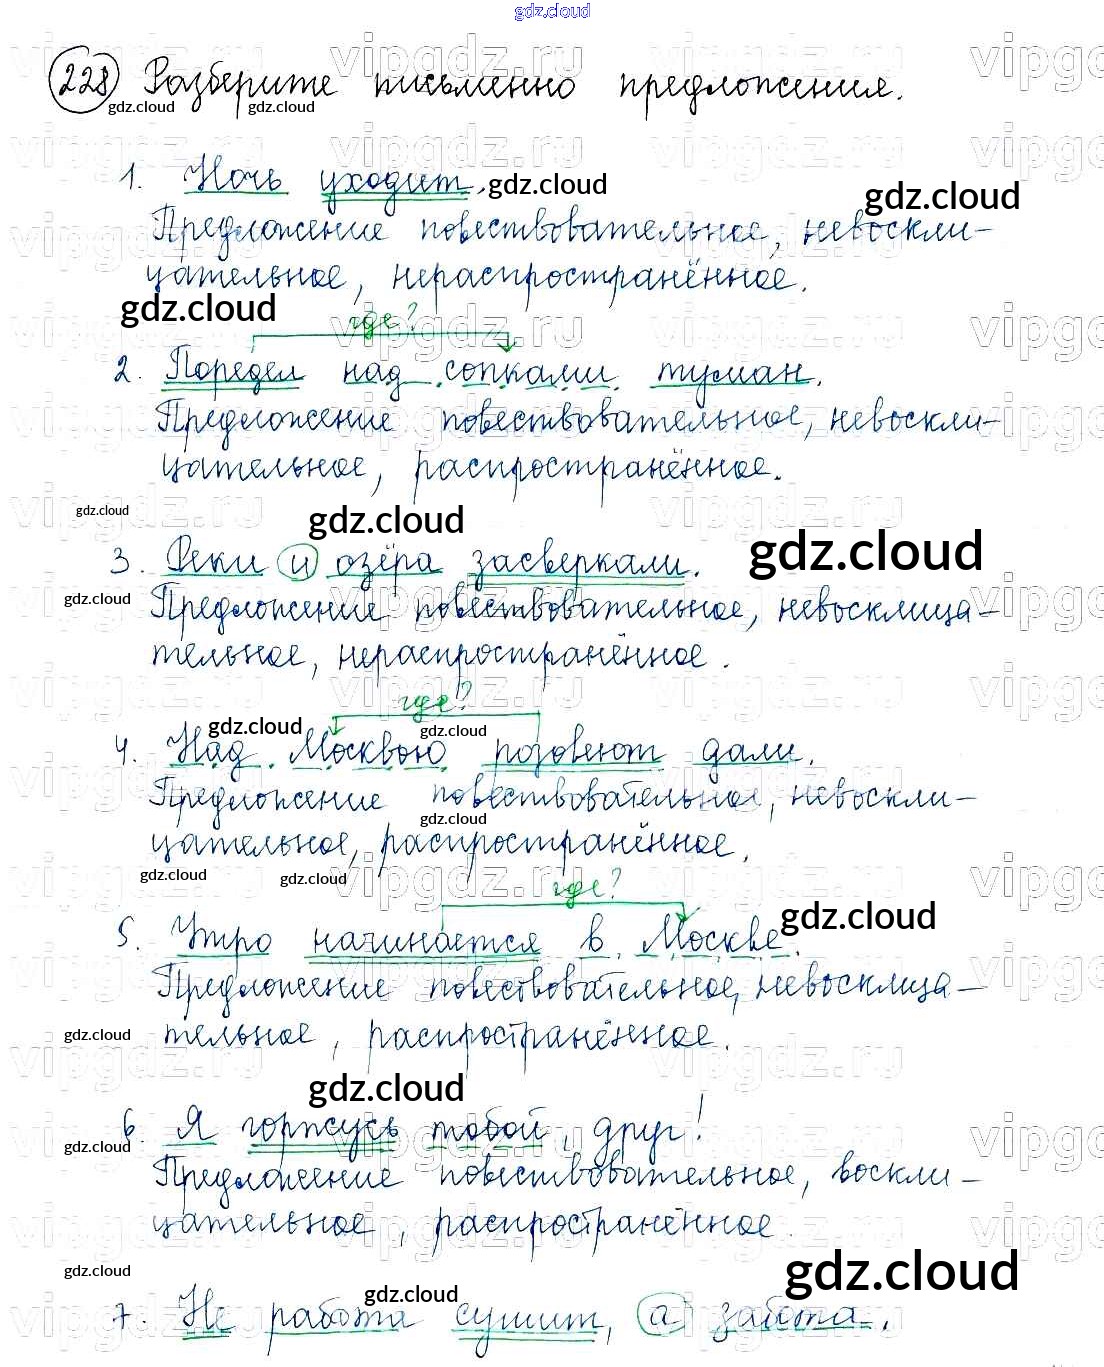 gdz.cloud
228 Разберите письменно предложения.
1. Ночь уходит.
Предложение повествовательное, невоскли-
цательное, нераспространённое.
где?
2. Поредел над сопками туман.
Предложение повествовательное, невоскли-
цательное, распространённое.
3. Реки и озёра засверкали.
Предложение повествовательное, невосклица-
тельное, нераспространённое.
где?
4. Над Москвою розовеют дали.
Предложение повествовательное, невоскли-
цательное, распространённое.
где?
5. Утро начинается в Москве.
Предложение повествовательное, невосклица-
тельное, распространённое.
6. Я горжусь тобой, друг!
Предложение повествовательное, воскли-
цательное, распространённое.
7. Не работа сушит, а забота.